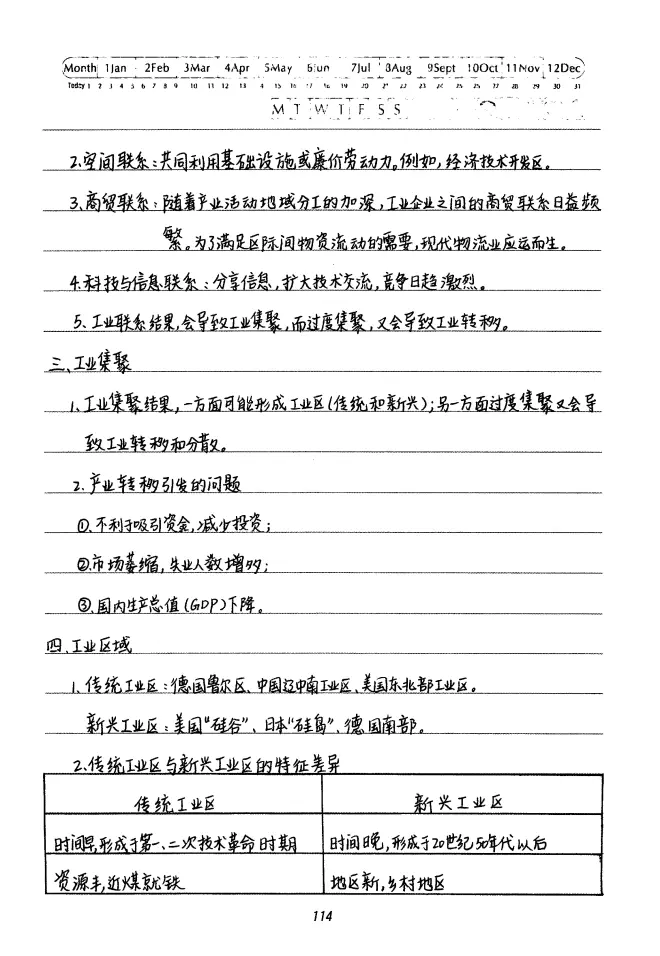 Month 1Jan 2Feb 3Mar 4Apr 5May 6Jun 7Jul 8Aug 9Sept 10Oct 11Nov 12Dec
Today 1 2 3 4 5 6 7 8 9 10 11 12 13 14 15 16 17 18 19 20 21 22 23 24 25 26 27 28 29 30 31
M T W T F S S
2.空间联系:共同利用基础设施或廉价劳动力。例如,经济技术开发区。
3.商贸联系:随着产业活动地域分工的加深,工业企业之间的商贸联系日益频
繁。为了满足区际间物资流动的需要,现代物流业应运而生。
4.科技与信息联系:分享信息,扩大技术交流,竞争日趋激烈。
5.工业联系结果,会导致工业集聚,而过度集聚,又会导致工业转移。
三、工业集聚
1.工业集聚结果,一方面可能形成工业区(传统和新兴);另一方面过度集聚又会导
致工业转移和分散。
2.产业转移引发的问题
①.不利于吸引资金,减少投资;
②.市场萎缩,失业人数增多;
③.国内生产总值(GDP)下降。
四、工业区域
1.传统工业区:德国鲁尔区、中国辽中南工业区、美国东北部工业区。
新兴工业区:美国“硅谷”、日本“硅岛”、德国南部。
2.传统工业区与新兴工业区的特征差异
传统工业区 新兴工业区
时间早,形成于第一、二次技术革命时期 时间晚,形成于20世纪50年代以后
资源丰,近煤就铁 地区新,乡村地区
114